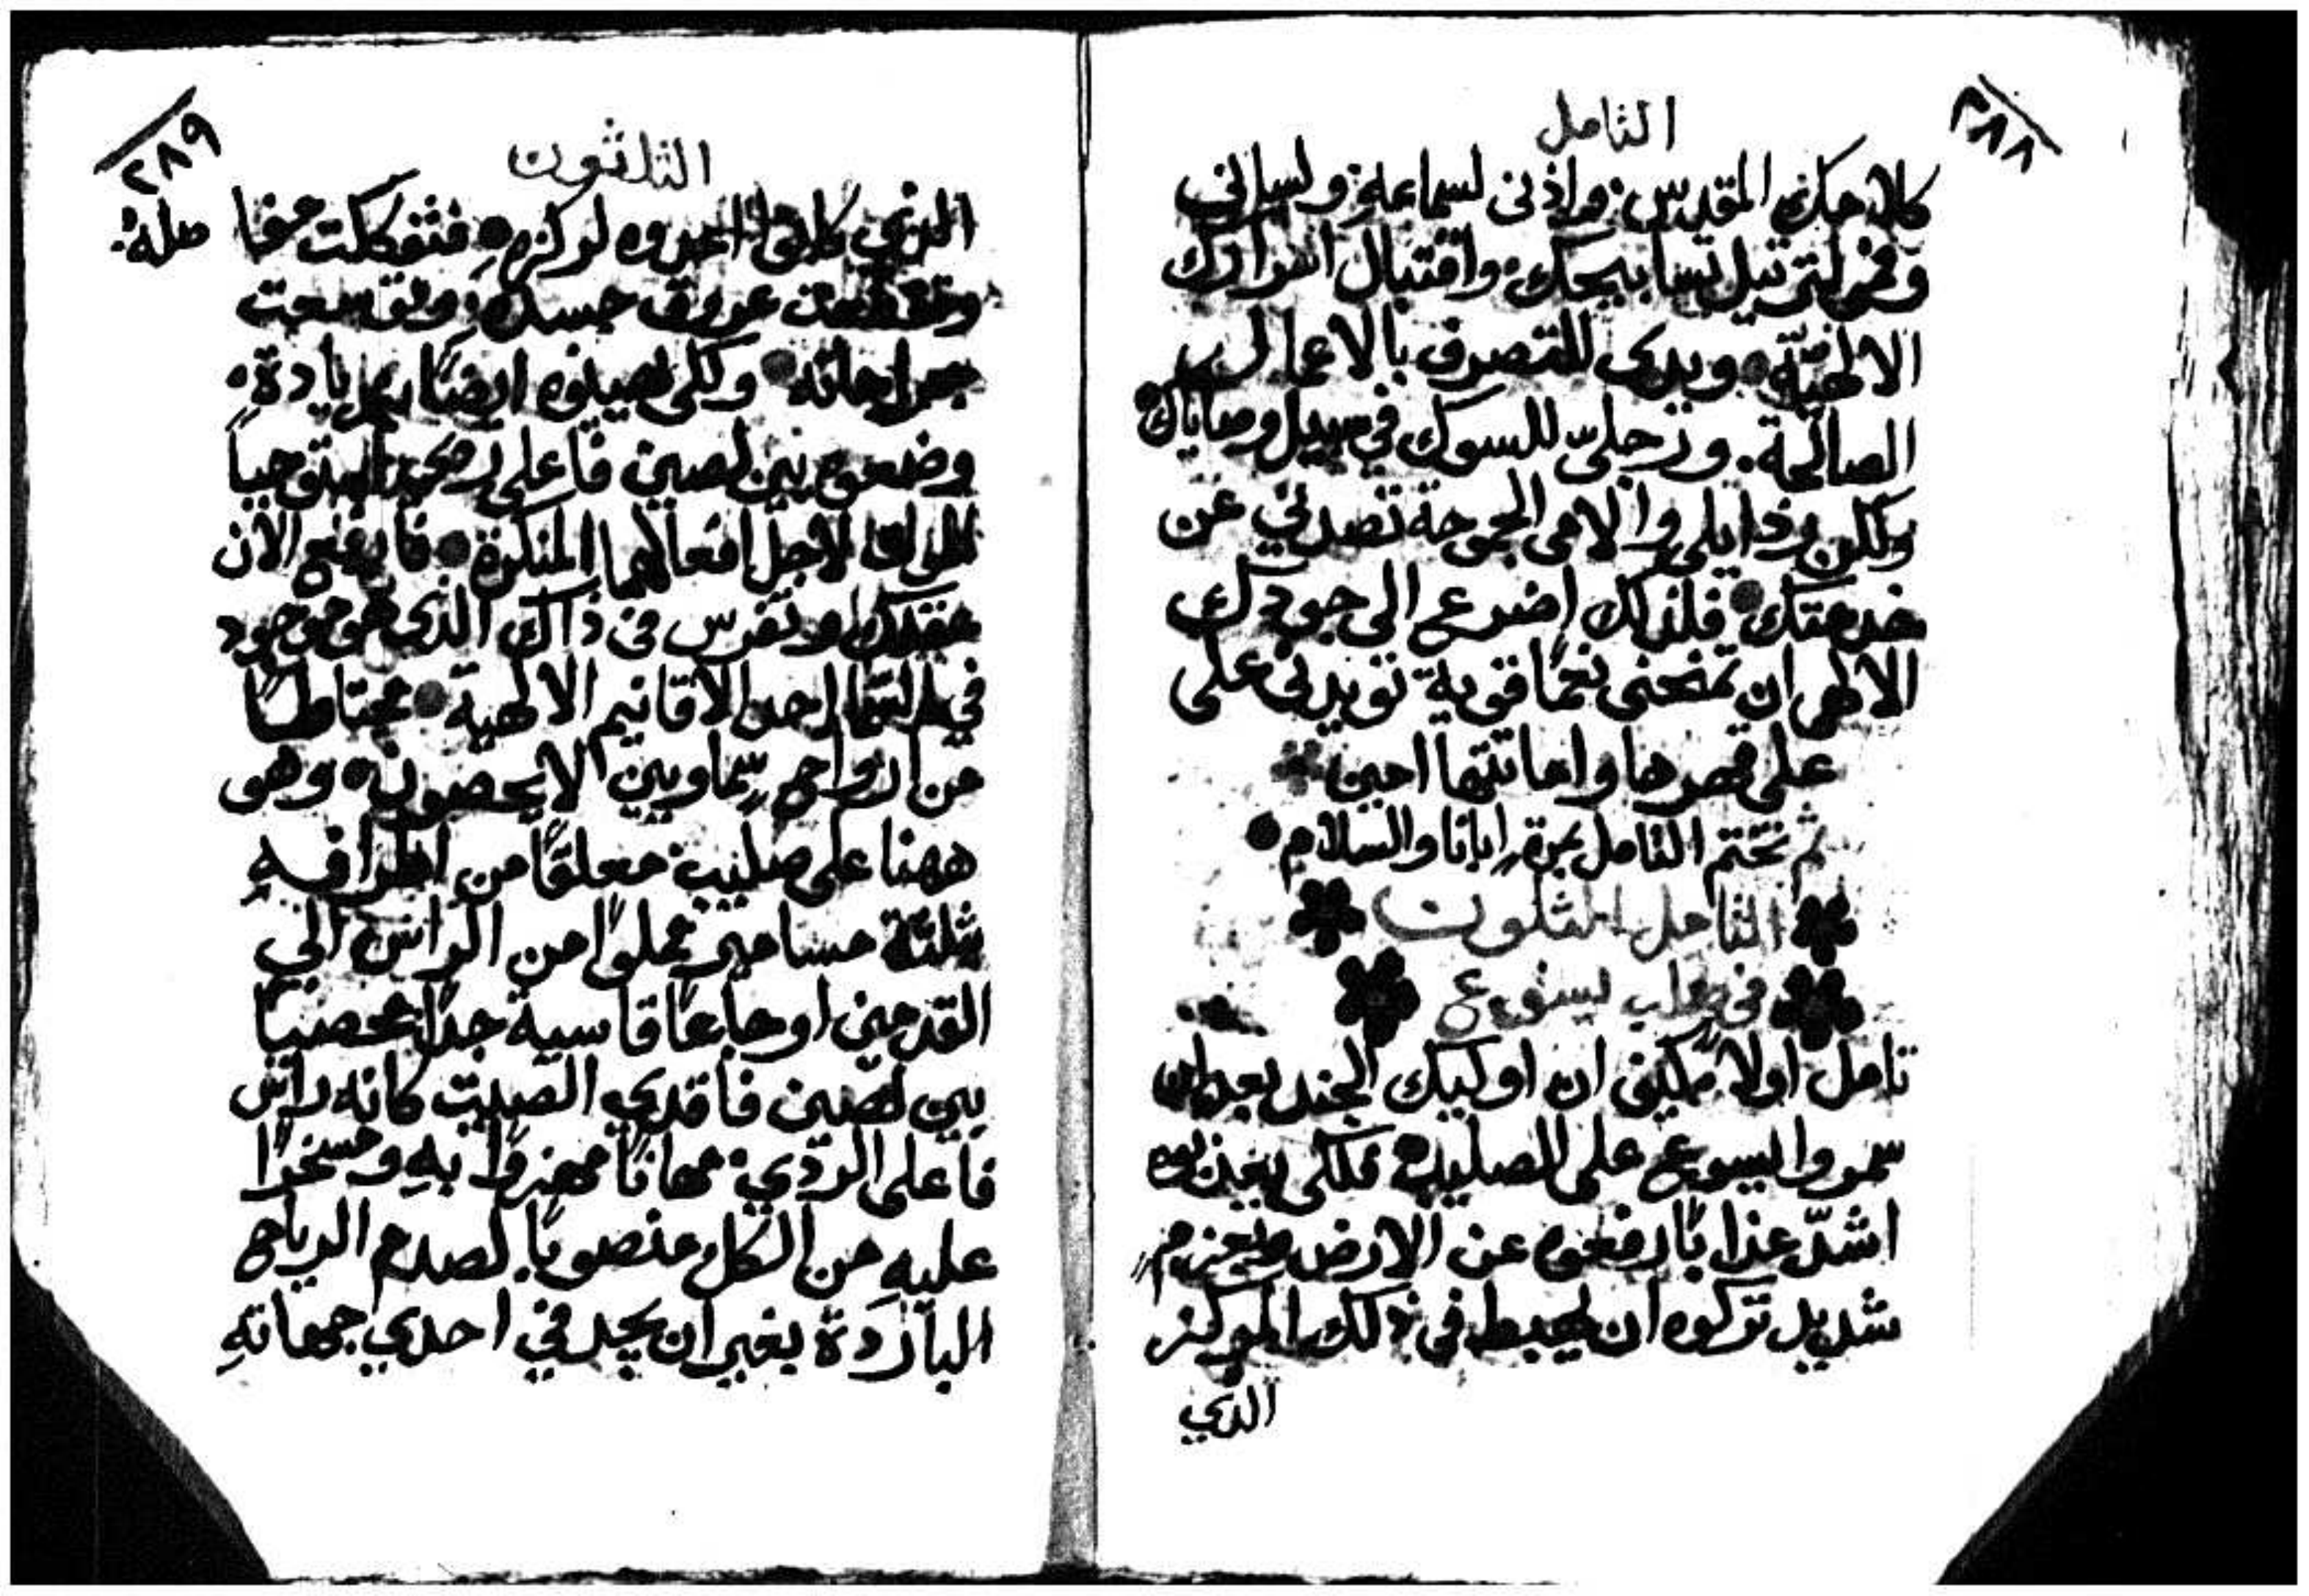 ٢٨٨
التامل
كلامك المقدس: واذنى لسماعه: ولسانى
وفمى لترتيل تسابيحك: واقتبال اسرارك
الالهيّة • ويدى للتصرف بالاعمال
الصالحة. ورجليّ للسوك في سبيل وصاياك •
ولكن رذايلى والامى الجموحة تصدني عن
خدمتك • فلذلك اضرع الى جودك
الالهى ان تمنحنى نعمًا قوية تويدنى على
على قهرها واماتتها امين
ثم تختم التامل بمرة ابانا والسلام •
التامل الثلثون
في صلب يسوع
تامل اولًا كيف ان اوليك الجند بعد ان
سمروا ايسوع على الصليب فلكى يعذبوه
اشدّ عذابًا رفعوه عن الارض بعزم
شديد تركوه ان يهبط في ذلك المركز
الذي
٢٨٩
الثلثون
الذي كانوا اعدوه لركزه • فتفككت مفاصله:
وتقطعت عروق جسده: وتوسعت
جراحاته • ولكى يهينوه ايضًا بزيادة •
وضعوه بين لصين فاعلى استوجبا
لاجل افعالهما المنكرة • فارفع الان
عقلك وتفرس في ذاك الذي هو موجود
في السما احد الاقانيم الالهية • محتاطًا
من ارواح سماويين لا يحصون • وهو
ههنا على صليب: معلقًا من اطرافهِ
بثلثة مسامير مملوًا من الراس الى
القدمين اوجاعًا قاسية جدًا محصيًا
بين لصين فاقدي الصيت كانه راس
فاعلى الردي: مهانًا مهزوًا بهِ ومسخرًا
عليهِ من الكل منصوبًا لصدم الرياح
الباردة بغير ان يجد في احدي جهاتهِ